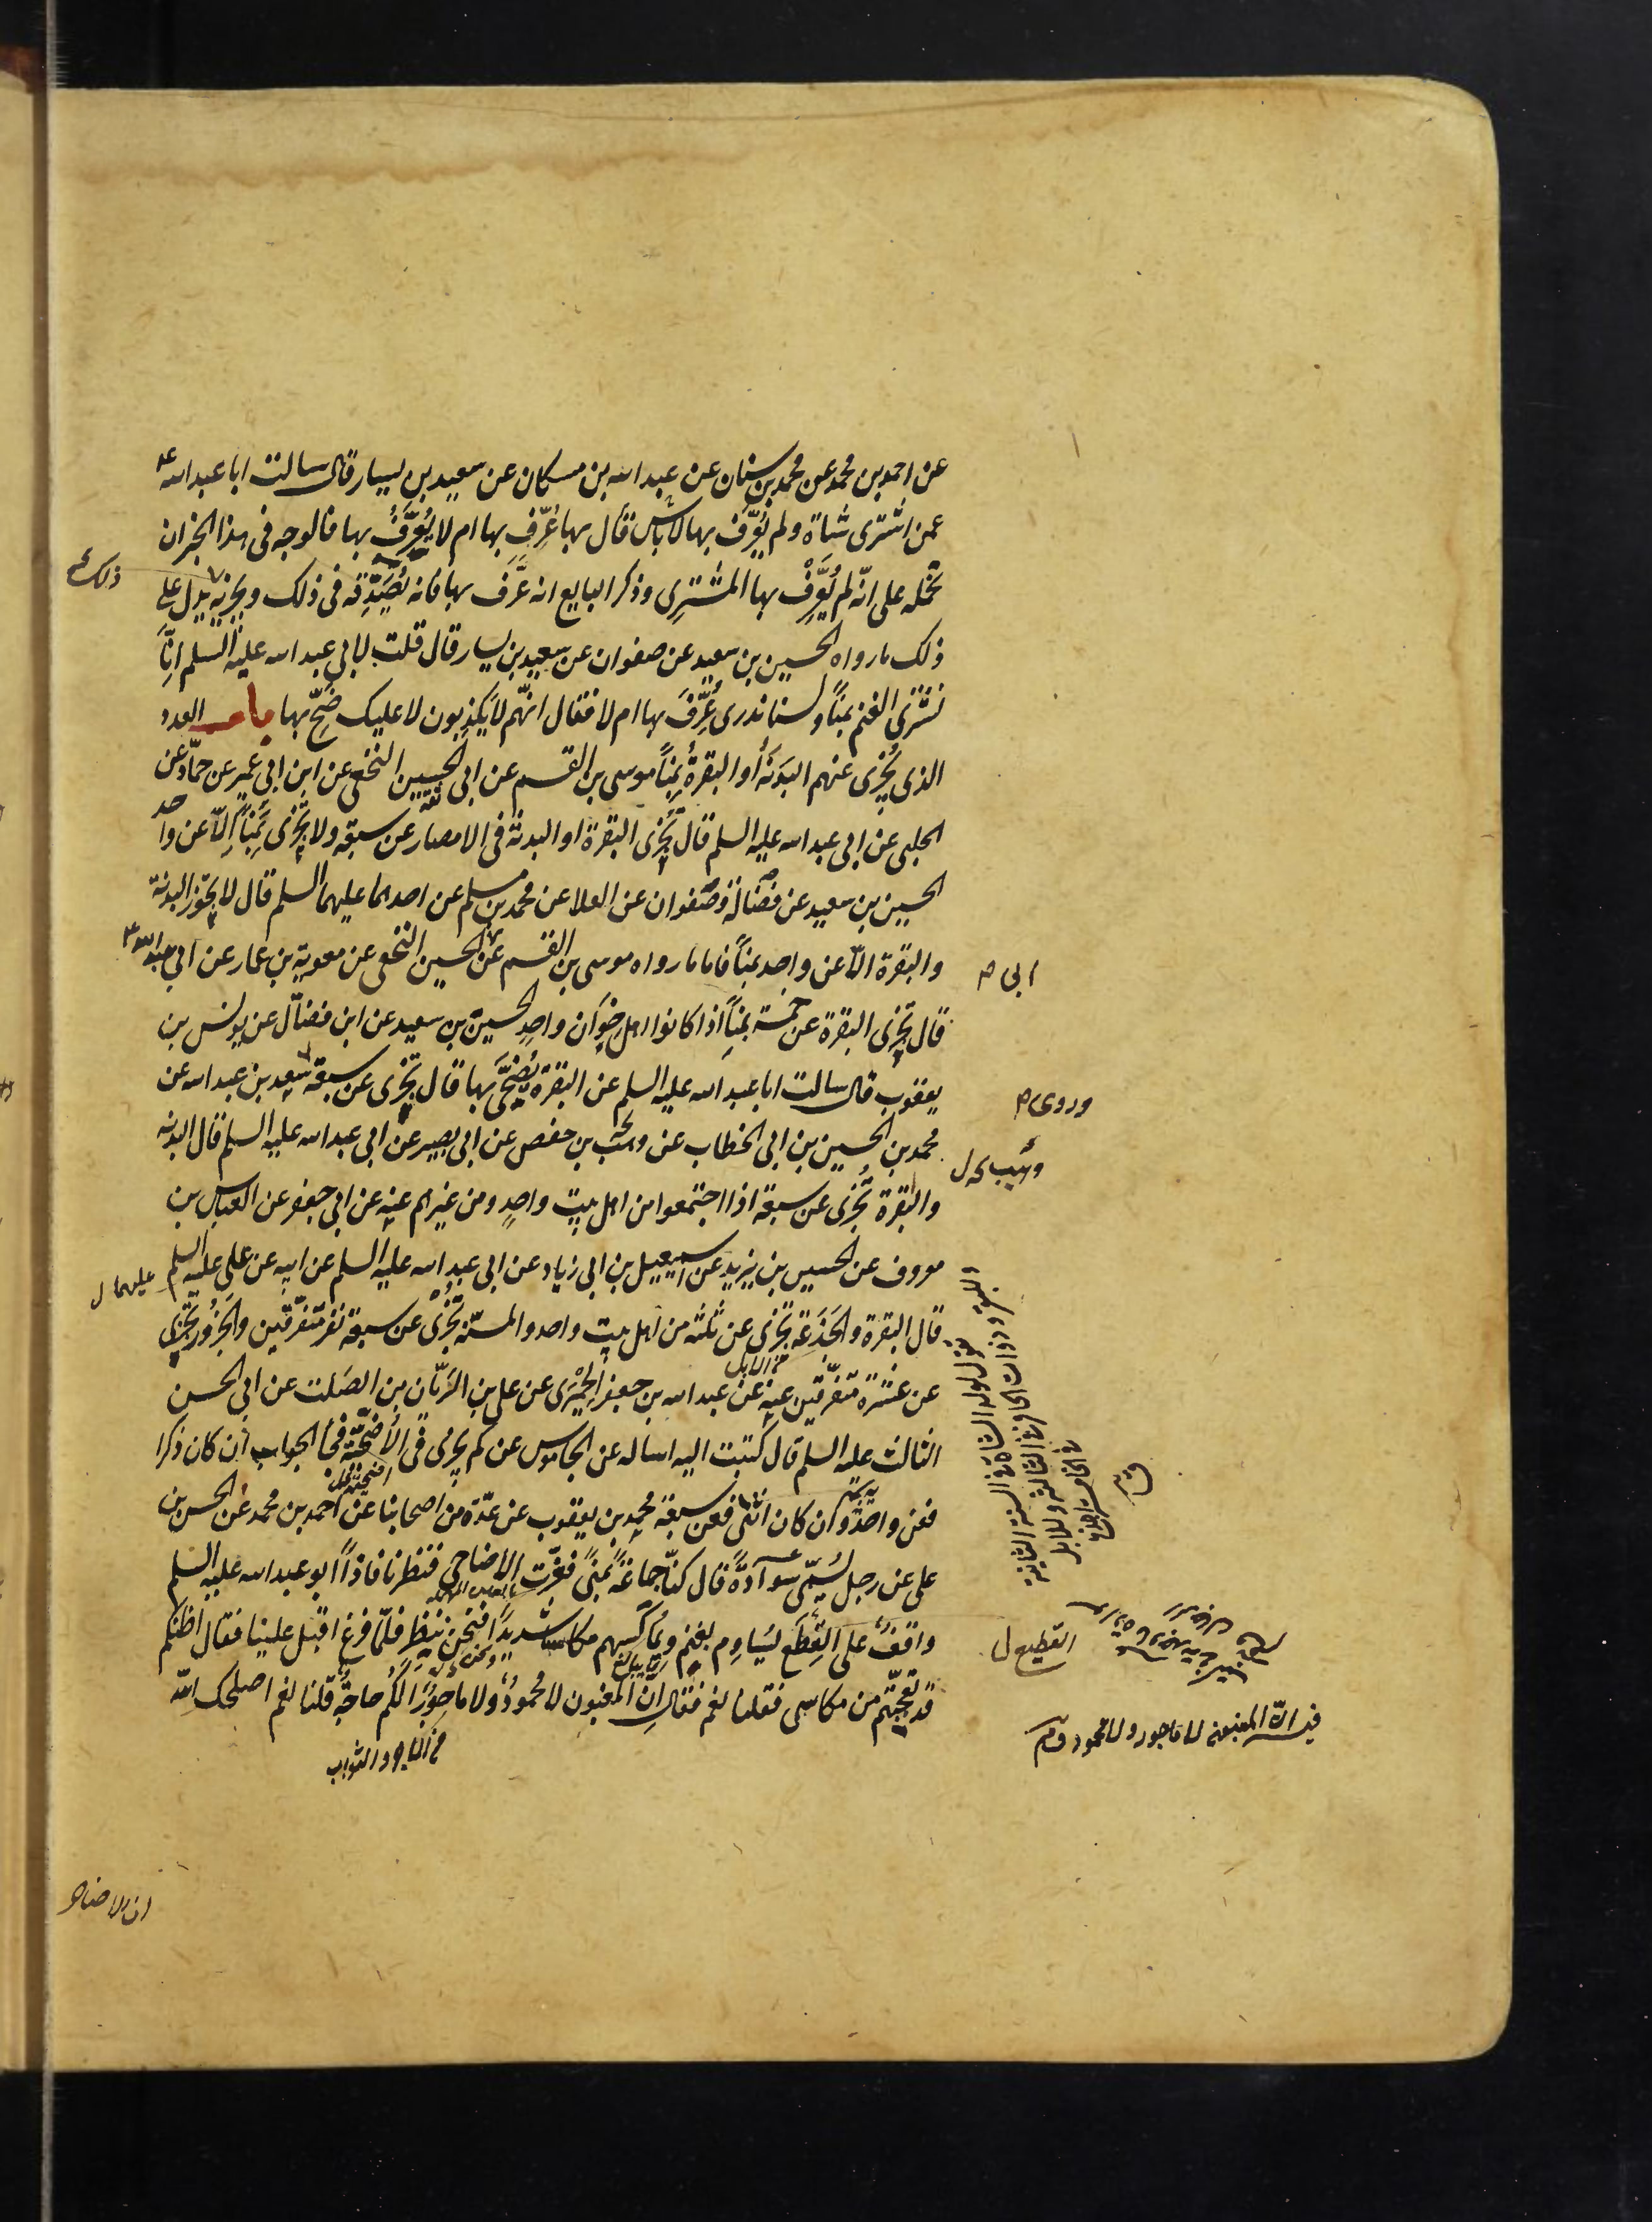 عن احمد بن محمد عن محمد بن سنان عن عبد الله بن مسكان عن سعيد بن يسار قال سالت ابا عبد الله ع
عمن اشترى شاة ولم يُعَرَّف بها لا باس قال بها عُرِّف بها ام لا يُعَرَّفُ بها فالوجه فى هذا الخبر ان
نحمله على انّه لم يُعَرِّفْ بها المشترِى وذكر البايع انه عَرَّف بها فانه يُصَدِّقه فى ذلك ويجزيه يدل على
ذلك ما رواه الحسين بن سعيد عن صفوان عن سعيد بن يسار قال قلت لابى عبد الله عليه السلم انّا
نشترى الغنم بمنًا ولسنا ندرى عُرِّفَ بها ام لا فقال انهّم لا يَكذِبون لا عليك ضَحِّ بها باب العدد
الذى يُجْزى عنهم البَدَنَةُ أو البقرةُ بِمِنًا موسى بن القسم عن ابى الحسين النخعى عن ابن ابى عمير عن حمّاد عن
الحلبى عن ابى عبد الله عليه السلم قال تُجْزى البقرة او البدنة فى الامصار عن سبعة ولا تجْزى بمِنًا إلاّ عن واحد
الحسين بن سعيد عن فضَالة وصفوان عن العلا عن محمد بن مسلم عن احدهما عليهما السلم قال لا يجوز البدنة
والبقرة الاّ عن واحد بمنًا فاما ما رواه موسى بن القسم عن الحسين النخعى عن معوية بن عمار عن ابى عبد الله ع
قال تجزى البقرة عن خمسة بمنًا اذا كانوا اهل خِوَان واحد الحسين بن سعيد عن ابن فضّال عن يونس بن
يعقوب قال سالت ابا عبد الله عليه السلم عن البقرة يُضَحَّى بها قال تجزى عن سبعة سعد بن عبد الله عن
محمد بن الحسين بن ابى الخطاب عن وهب بن حفص عن ابى بصير عن ابى عبد الله عليه السلم قال البدنة
والبقرة تُجْزى عن سبعة اذا اجتمعوا من اهل بيت واحدٍ ومن غيرهم عنه عن ابى جعفر عن العباس بن
معروف عن الحسين بن يزيد عن اسمعيل بن ابى زياد عن ابى عبد الله عليه السلم عن ابيه عن على عليه السلم
قال البقرة والجَذَعة تجْزى عن ثلثة من اهل بيت واحد والمسنّه تُجْزى عن سبعة نفر متفرّقين والجَزُور تجزى
عن عشرة متفرّقين عنه عن عبد الله بن جعفر الحِمْيَرى عن على بن الرَيّان بن الصَلت عن ابى الحسن
الثالث عليه السلم قال كتبت اليه اساله عن الجاموس عن كم يجزى فى الأُضْحِيّة فجاَ الجواب ان كان ذكرا
فعن واحدٍ وان كان انثى فعن سبعة محمد بن يعقوب عن عدّة من اصحابنا عن احمد بن محمد عن الحسن بن
على عن رجل يُسمّى سَوادَةَ قال كنّا جماعَةً بمنًى فعزّت الاضاحى فنظرنا فاذاً ابو عبد الله عليه السلم
واقفٌ على القِطَع يُسَاوِم بغنم ويُماكِسهم مكاسًا شديدًا فنحن ننظِر فلمّا فرغ اقبل علينا فقال اظنكم
قد تعجّبتم من مكاسى فقلنا نعم فقال إنّ المغبون لا محمودٌ ولا ماجورٌ ألكُم حاجةٌ قلنا نعم اصلحك الله
ذلك
ابى م
وروى م
وهيب ل
عليهما ل
من الابل
القطيع ل
من الاجر والثواب
فيه انّ المغبون لا ماجور ولا محمود
ان الاضاحى